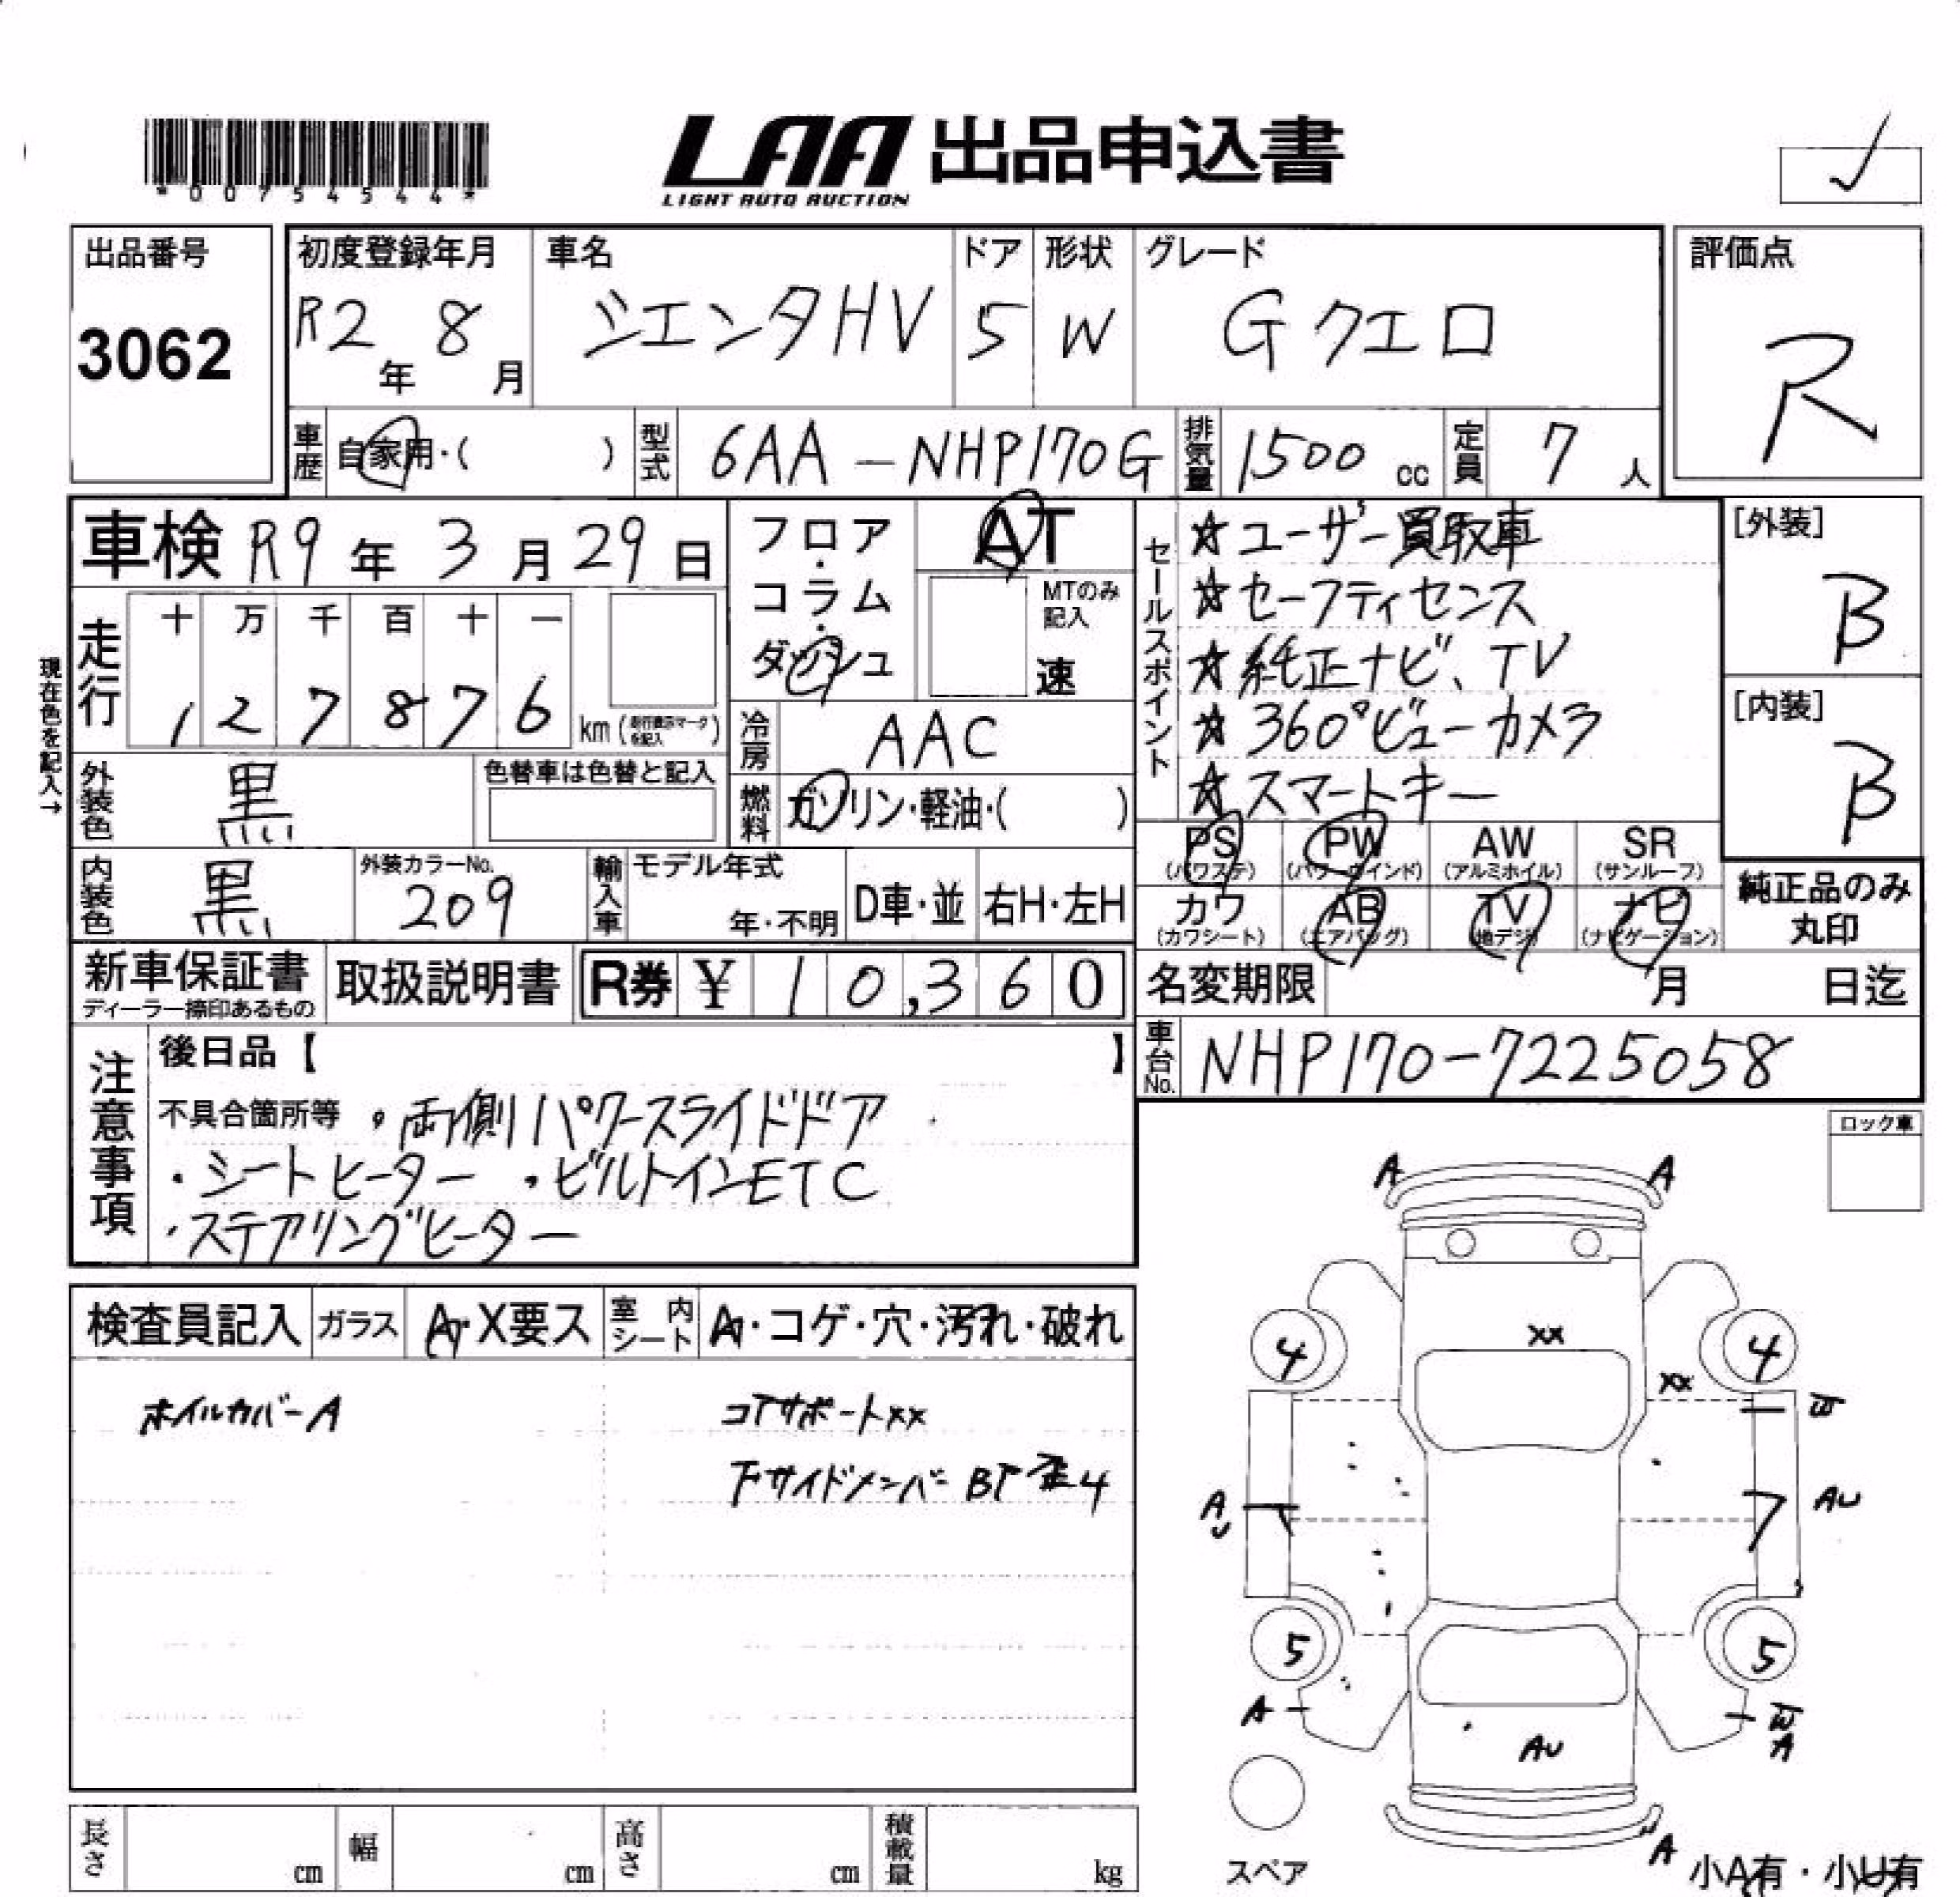 *0075454 4*
LAA 出品申込書
LIGHT AUTO AUCTION
出品番号
3062
初度登録年月
R2年 8月
車名
シエンタHV
ドア
5
形状
W
グレード
Gクエロ
評価点
R
車歴 自家用・( )
型式 6AA-NHP170G
排気量 1500 cc
定員 7人
車検 R9年 3月 29日
フロア・コラム・ダッシュ
AT
MTのみ記入
速
現在色を記入→
走行
十 万 千 百 十 一
1 2 7 8 7 6 km (走行表示マークを記入)
冷房 AAC
燃料 ガソリン・軽油・( )
外装色 黒
色替車は色替と記入
内装色 黒
外装カラーNo.
209
輸入車 モデル年式
年・不明
D車・並
右H・左H
セールスポイント
☆ユーザー買取車
☆セーフティセンス
☆純正ナビ、TV
☆360°ビューカメラ
☆スマートキー
[外装]
B
[内装]
B
PS (パワステ)
PW (パワーウインド)
AW (アルミホイル)
SR (サンルーフ)
カワ (カワシート)
AB (エアバッグ)
TV (地デジ)
ナビ (ナビゲーション)
純正品のみ
丸印
新車保証書
ディーラー捺印あるもの
取扱説明書
R券 ¥ 10,360
名変期限 月 日迄
車台No. NHP170-7225058
注意事項
後日品【 】
不具合箇所等 ・両側パワースライドドア
・シートヒーター ・ビルトインETC
・ステアリングヒーター
ロック車
検査員記入 ガラス A・X要ス
室内シート A・コゲ・穴・汚れ・破れ
ホイルカバーA
コアサポートxx
下サイドメンバー BT 歪4
A A
xx
4 4
xx
W
AU AU
5 5
A W
A
AU
A
スペア
小A有・小U有
長さ cm
幅 cm
高さ cm
積載量 kg